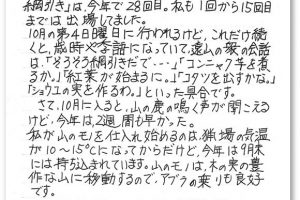 綱引き」は、今年で28回目。私も1回から15回目
までは出場してました。
10月の第4日曜日に行われるけど、これだけ続
くと、歳時や季語になっていて、遠山の衆の会話
は、「そろそろ綱引きだで…」「コンニャク芋を煮
るか。」「紅葉が始まるに。」「コタツを出すかな。」
「ショウユの実を作るわ。」といった具合です。
さて、10月に入ると、山の鹿の鳴く声が聞こえる
けど、今年は2週間も早かった。
私が山のモノを仕入れ始めるのは、猟場の気温
が10〜15℃になってからだけど、今年は9月末
には持ち込まれています。山のモノは、木の実の豊
作な山に移動するので、アブラの乗りも良好
です。